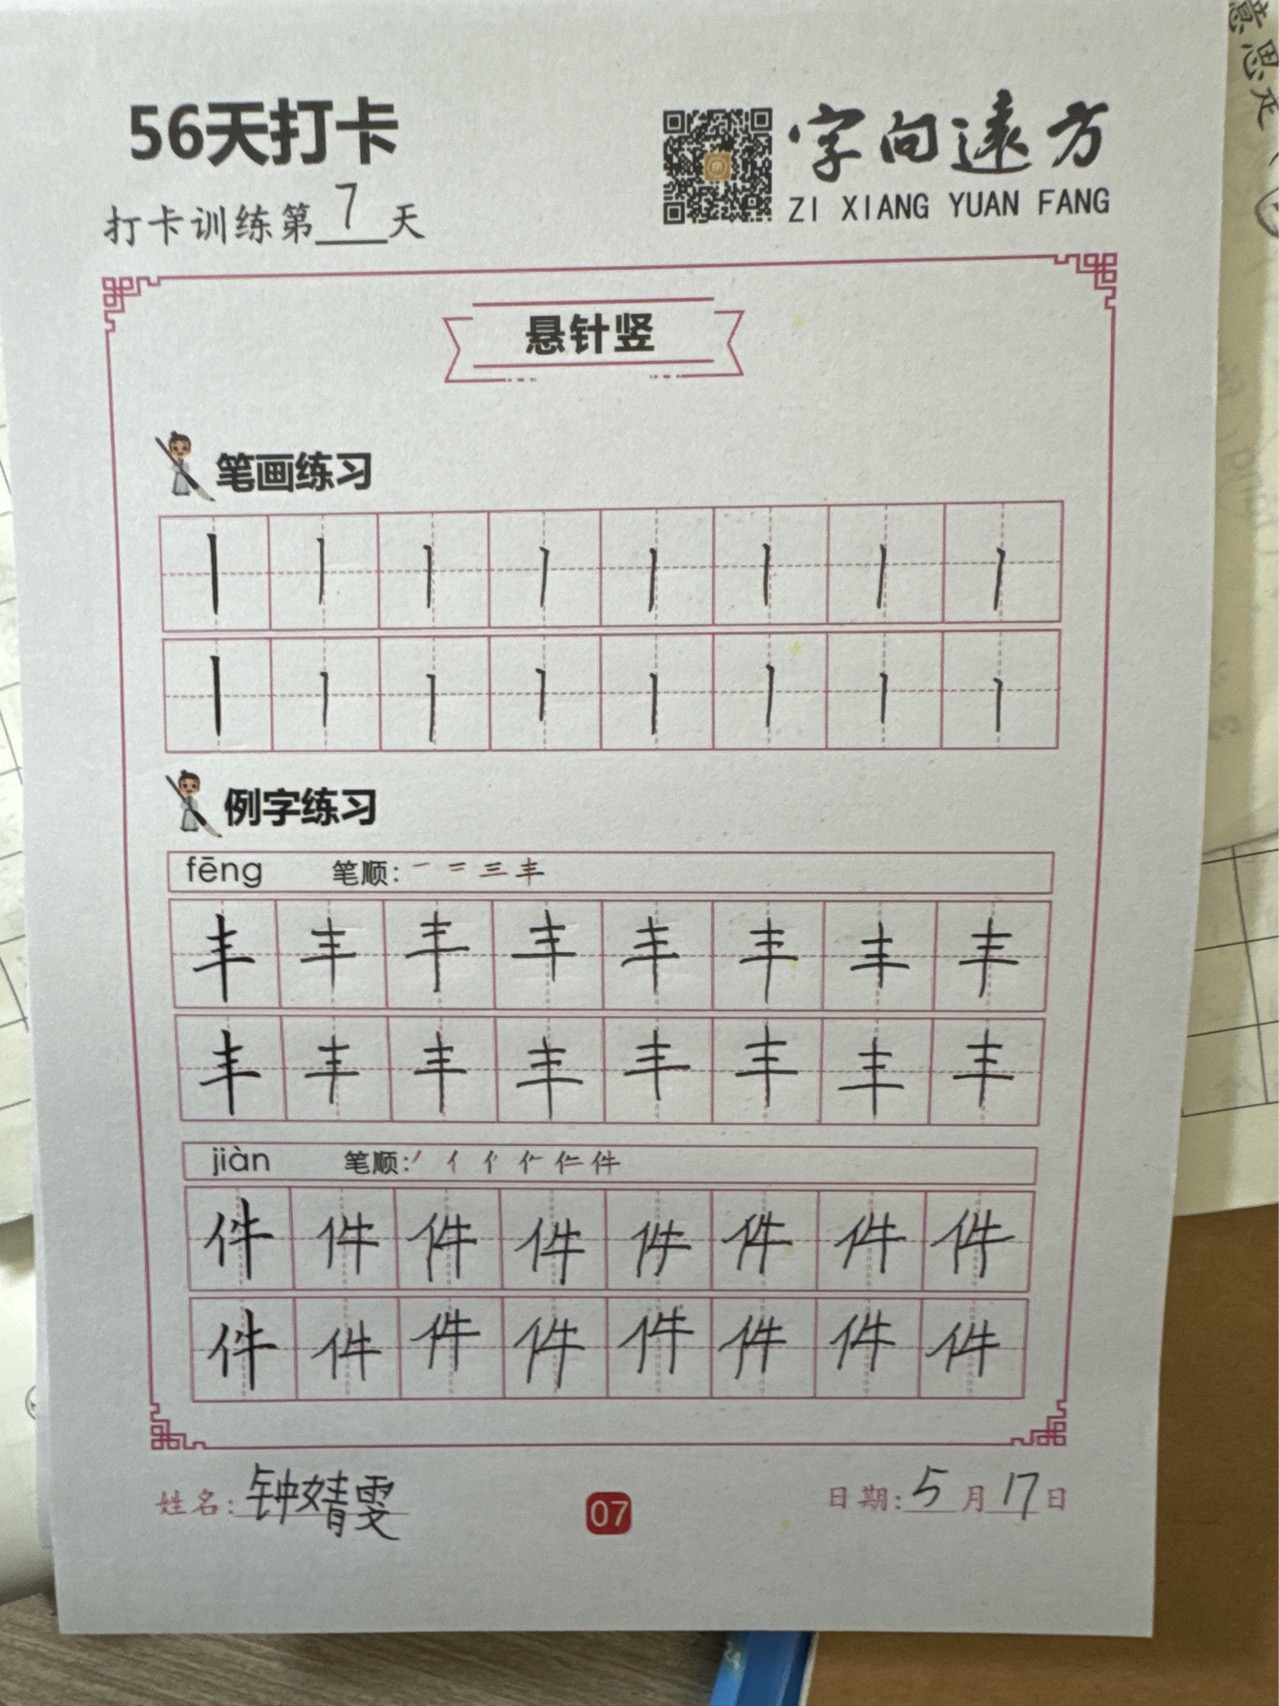 56天打卡
打卡训练第7天
字向遠方
ZI XIANG YUAN FANG
悬针竖
笔画练习
丨 丨 丨 丨 丨 丨 丨 丨
丨 丨 丨 丨 丨 丨 丨 丨
例字练习
fēng 笔顺: 一 二 三 丰
丰 丰 丰 丰 丰 丰 丰 丰
丰 丰 丰 丰 丰 丰 丰 丰
jiàn 笔顺: 丿 亻 件
件 件 件 件 件 件 件 件
件 件 件 件 件 件 件 件
姓名: 钟婧雯
07
日期: 5月17日
意思是